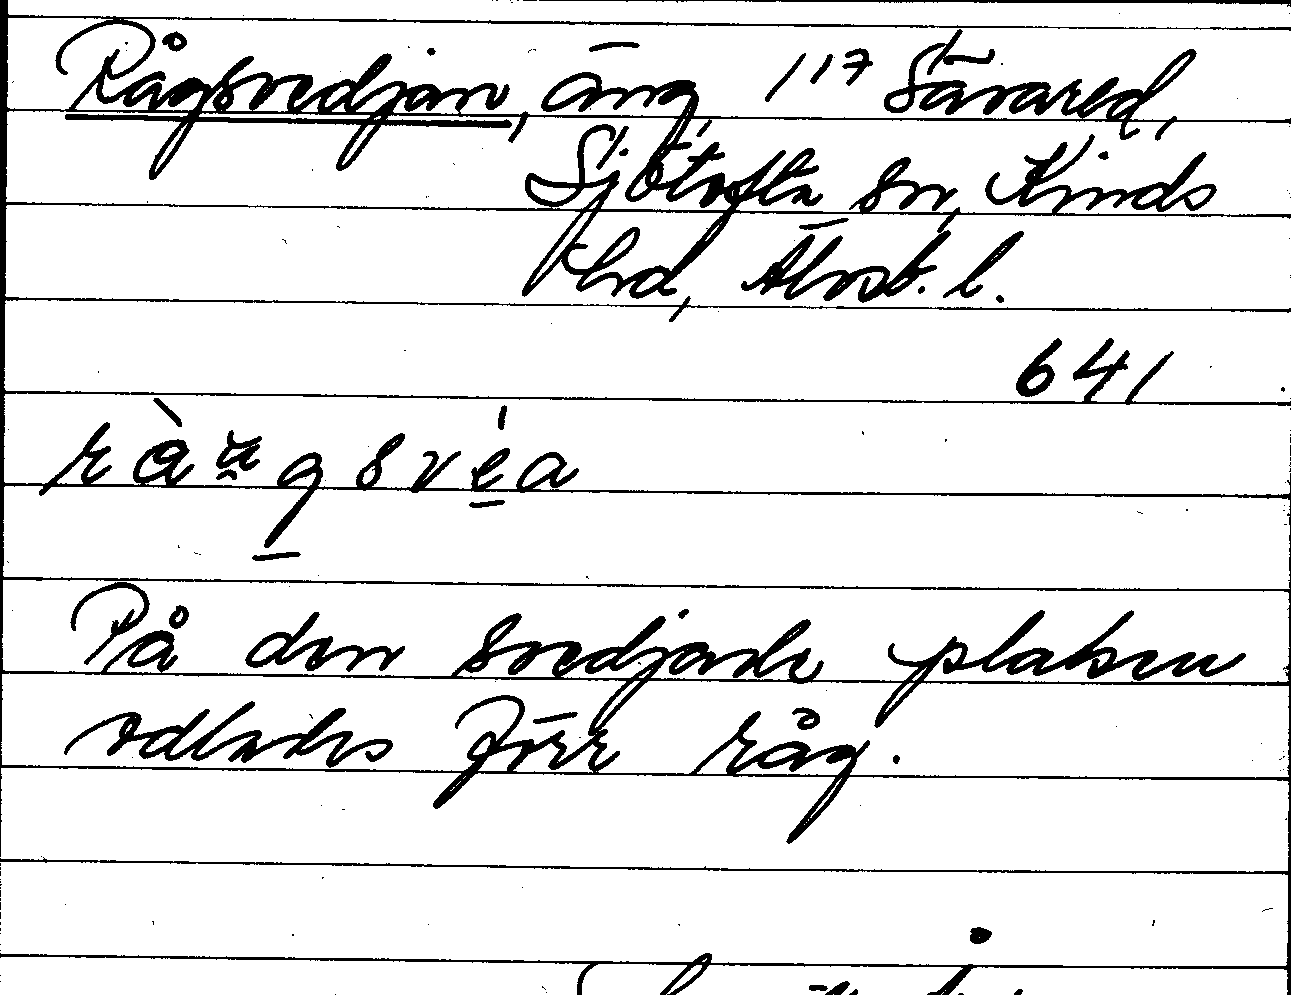 Rågsvedjan, äng, 1¹⁷ Sävared,
Sjötofta sn, Kinds
hd, Älvsb. l.
641
På den svedjade platsen
odlades förr råg.